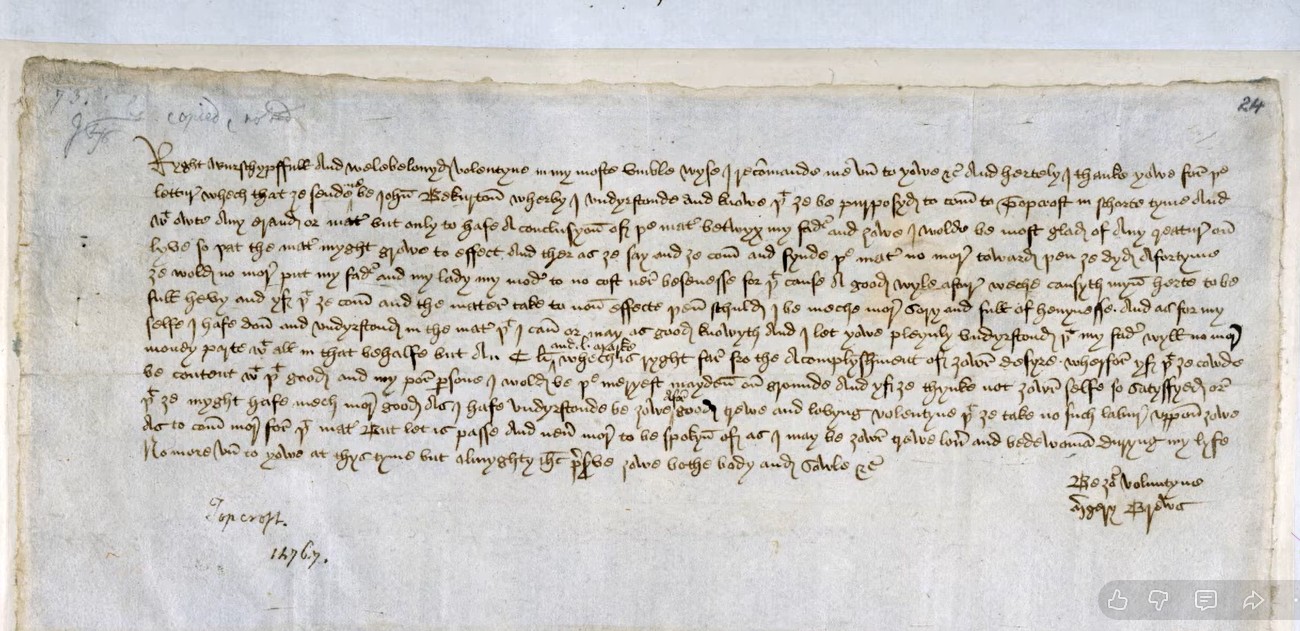 73. copied & noted
24
Ryght wurschypffull and welebelouyd Volentyne in my moste vmble wyse I recõmande me vn to yowe &c And hertely I thanke yowe for þe
lettur whech that ȝe sende me be John Bekurton wherby I vndyrstonde and knowe þt ȝe be purposyd to com to Topcroft in schorte tyme And
wt owte Any erand or mater but only to hafe A conclusyon of þe mater betwyx my fader and ȝowe I wolde be most glad of Any creatur on
lyve so þat the mater myght growe to effect And ther as ȝe say And ȝe com And fynde þe mater no mor toward þen ȝe dyd Afortyme
ȝe wold no mor put my fader and my lady my moder to no cost ner besenesse for þt cause A good wyle aftur weche causyth myn herte to be
full hevy and yf þt ȝe com and the mater take to non effecte þen schuld I be meche mor Sory and full of hevynesse. And as for my
selfe I hafe don and vndyrstond in the mater þt I can or may as good knowyth And I let yowe pleynly vndyrstond þt my fader wyll no mor
money parte wt all in that behalfe but An C li and l. marke whech is ryght far fro the Acomplyshment of ȝowr desyre. wherfor yf þt ȝe cowde
be content wt þt good and my por persone I wold be þe meryest mayden on grounde And yf ȝe thynke not ȝowr selfe so Satysfyed or
þt ȝe myght hafe mech mor good As I hafe vndyrstonde be ȝowe Afor good trewe and lovyng volentyne þt ȝe take no such labur vppon ȝowe
As to com mor for þt mater But let is passe And neuer mor to be spokyn of as I may be ȝowr trewe louer and bedewoman duryng my lyfe
No more vn to yowe at thys tyme but almyghty Jhc preserve ȝowe bothe body and Sowle &c
Be ȝour Voluntyne
Mergery Brews
Topcroft.
1476.7.